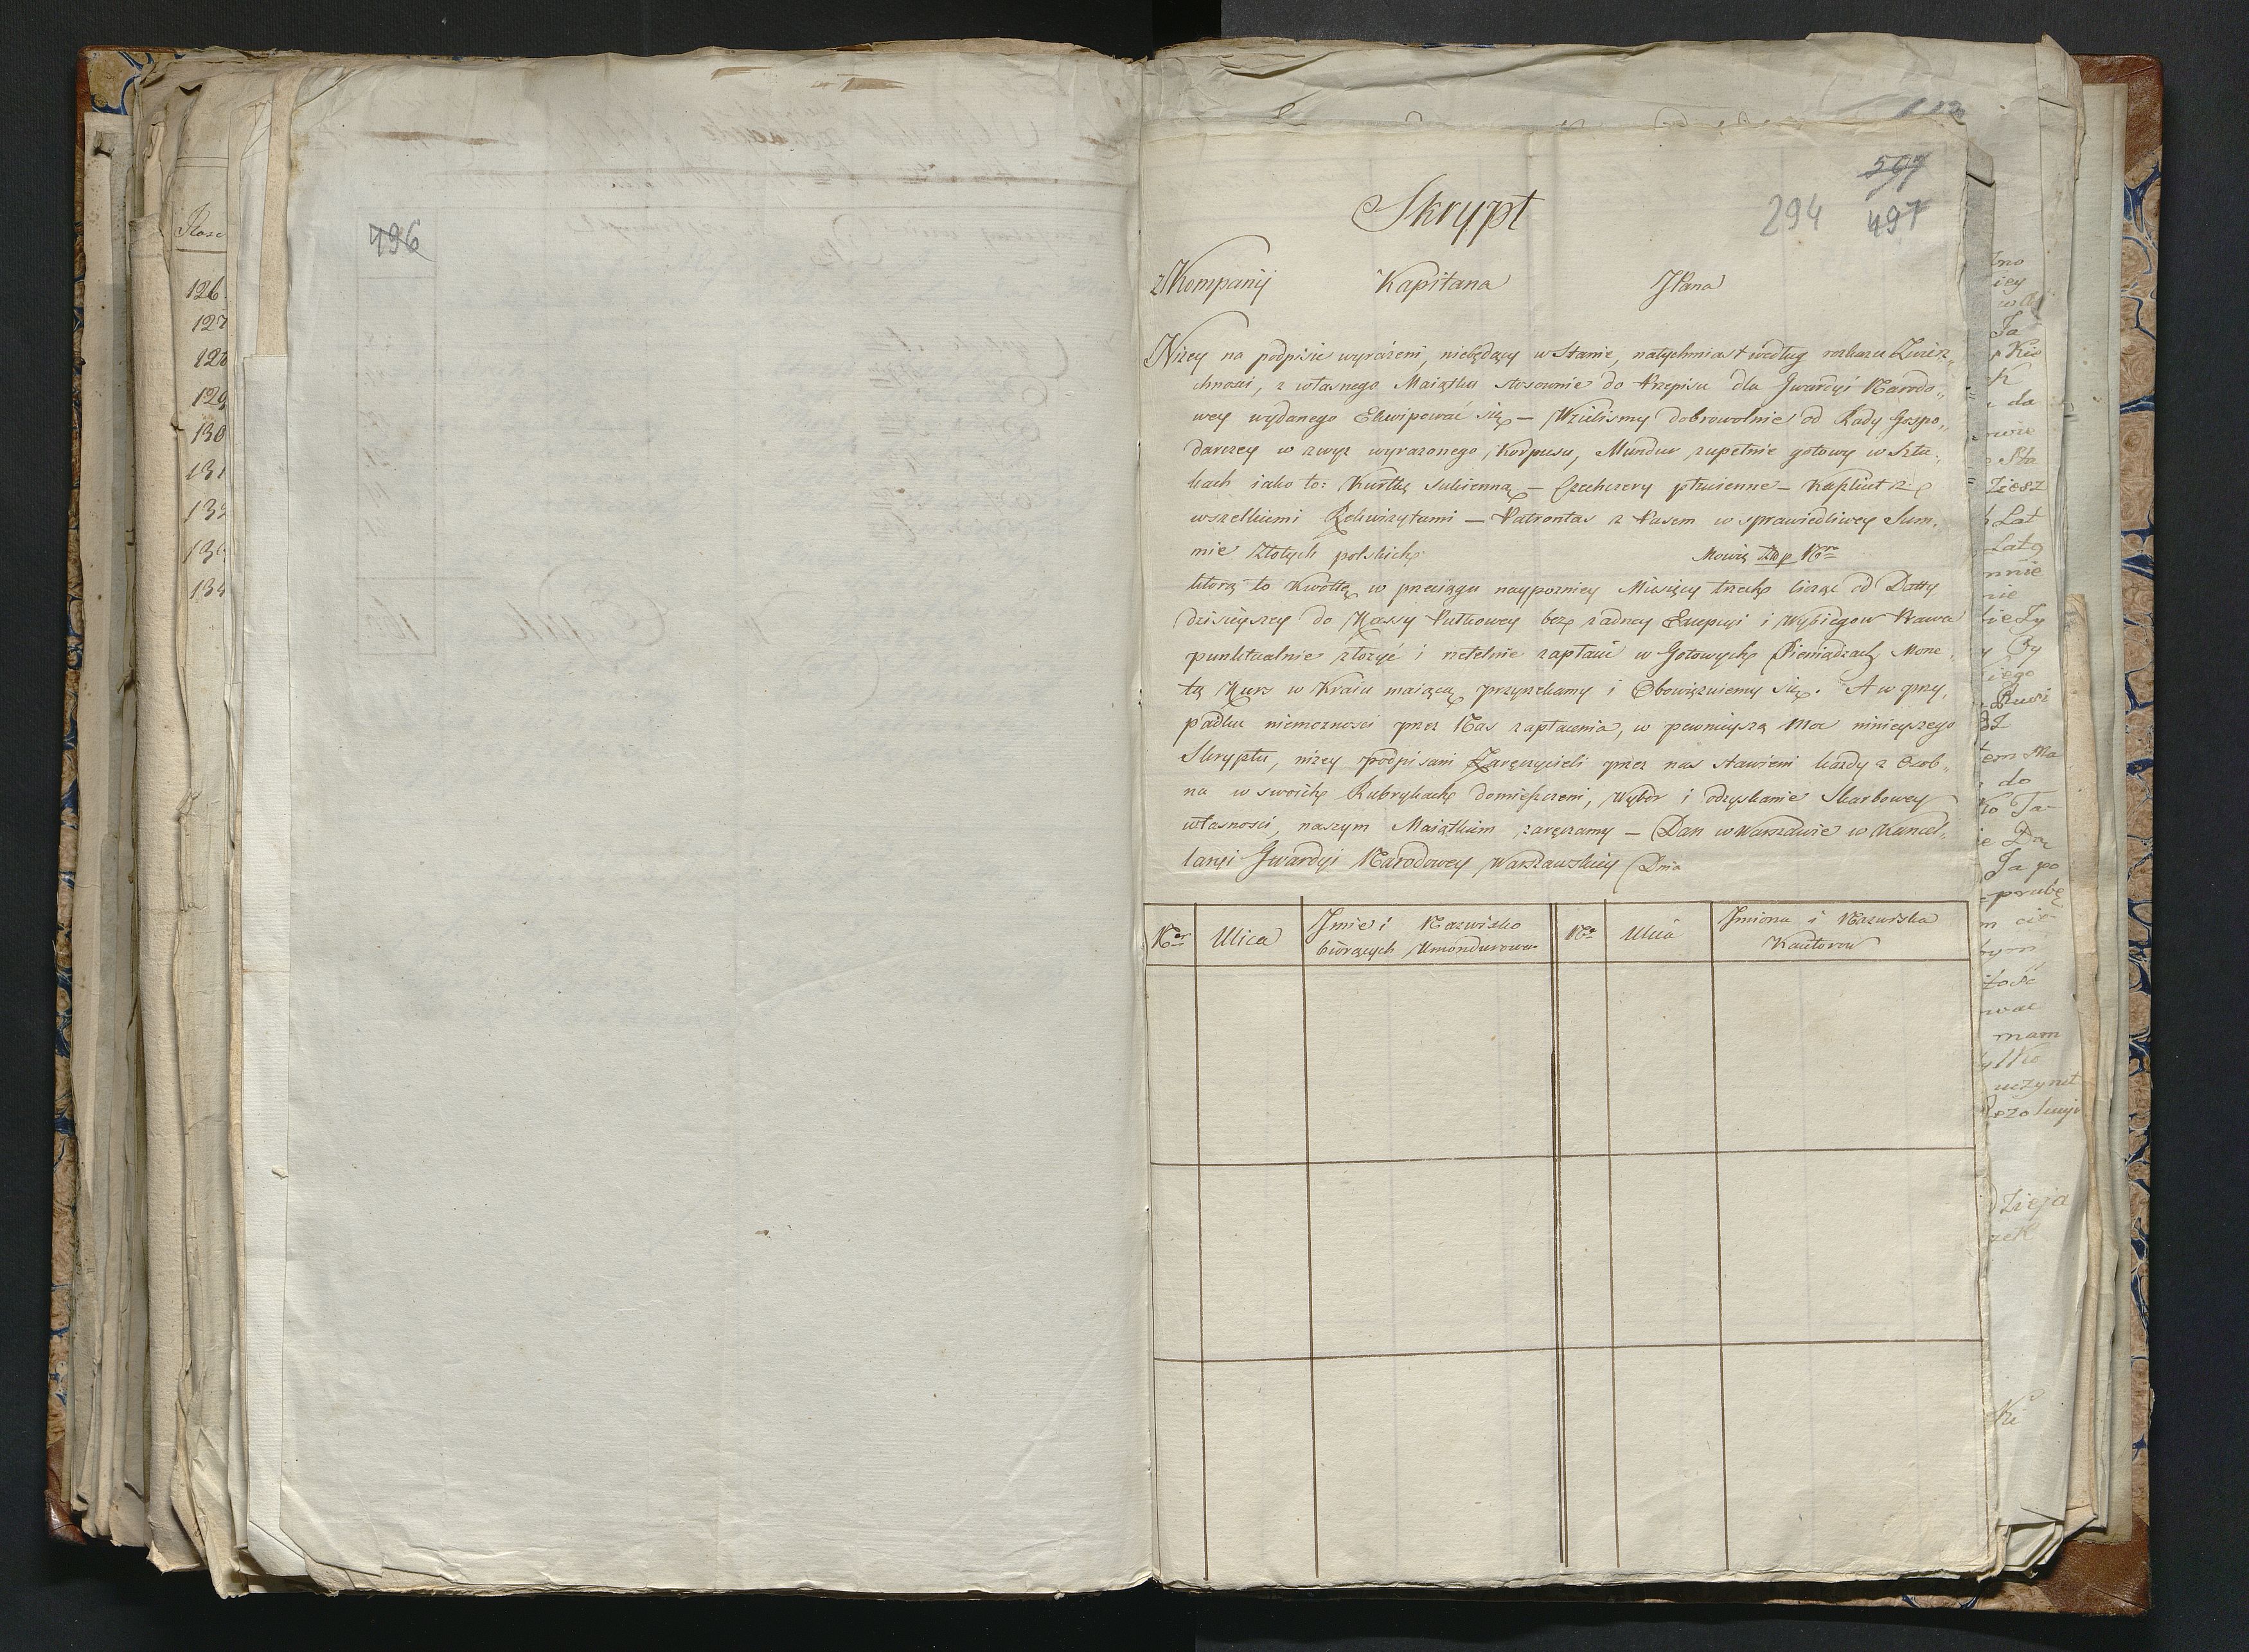 Rosc
126.
127
128
129
130
131
132
134
496
Skrypt
597
294 497
z Kompanij Kapitana JPana
Niżey na podpisie wyrażeni, niebędący w Stanie, natychmiast według rozkazu Zwierz„
chności, z własnego Maiątku stosownie do Przepisu dla Gwardyi Narodo„
wey wydanego Ekwipować się — Wzieliśmy dobrowolnie od Rady Gospo„
darczey w zwyż wyrażonego Korpusu, Mundur zupełnie gotowy w Sztu„
kach iako to: Kurtkę Sukienną — Czechczery płucienne — Kaszkiet z
wszelkiemi Rekwizytami — Patrontas z Pasem w sprawiedliwey Sum„
mie Złotych polskich Mowię Złp Nro
którą to Kwottę w przeciągu naypozniey Miesięcy trzech licząc od Datty
dzisieyszey do Kassy Pułkowey bez żadney Excepcyi i Wybiegow Prawa
punktualnie złożyć i rzetelnie zapłacić w Gotowych Pieniądzach Mone„
tą Kurs w Kraiu maiącą przyrzekamy i Obowiązuiemy się. A w przy„
padku niemożności przez Nas zapłacenia, w pewnieyszą Moc ninieyszego
Skryptu, niżey podpisani Zaręczyciele przez nas stawieni każdy z Osob„
na w swoich Rubrykach domieszczeni, Wybór i odzyskanie Skarbowey
własności, naszym Maiątkiem zaręczamy — Dan w Warszawie w Kancel„
laryi Gwardyi Narodowey Warszawskiey Dnia
Ner Ulica Jmie i Nazwisko biorących Umondurowa. No Ulica Jmiona i Nazwiska Kautorow